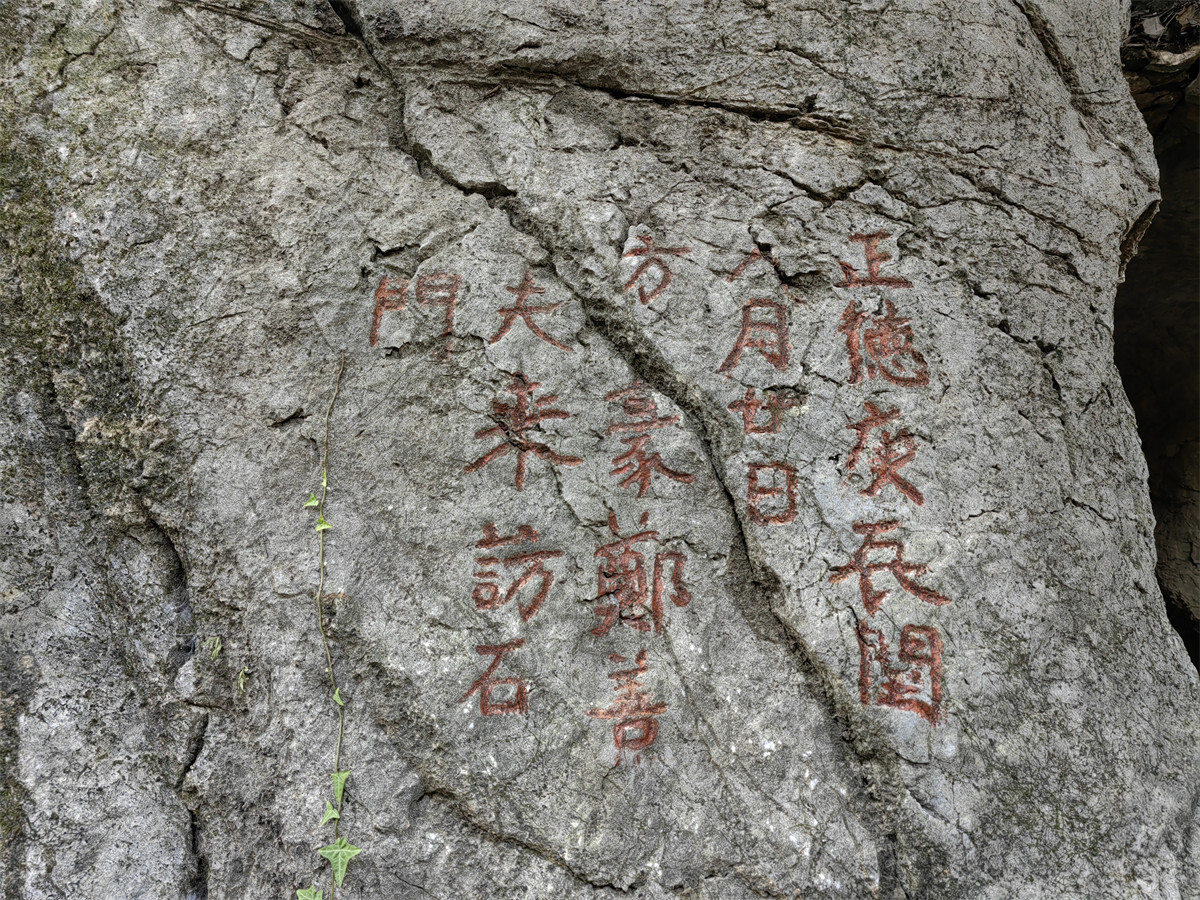 正德庚辰閏
八月廿日
方豪鄭善
夫來訪石
門